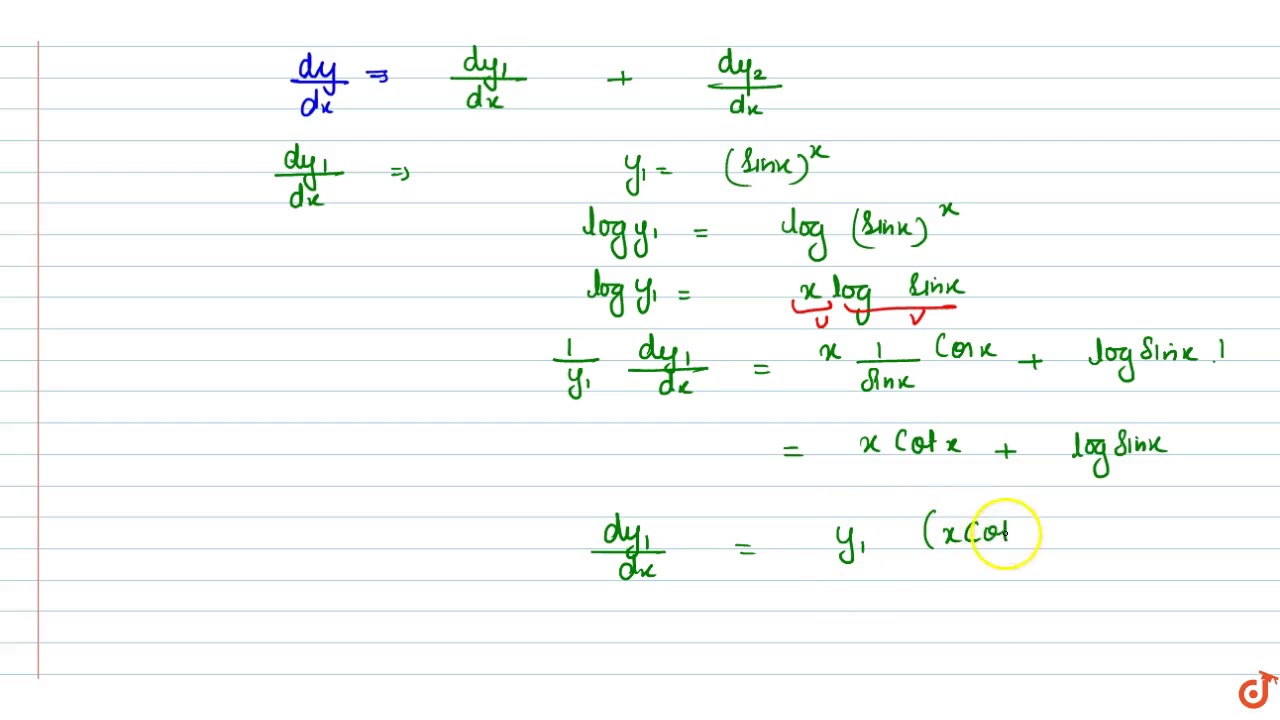 dy/dx ⇒ dy₁/dx + dy₂/dx
dy₁/dx ⇒ y₁ = (sinx)^x
log y₁ = log (sinx)^x
log y₁ = x log sinx
U V
1/y₁ dy₁/dx = x 1/sinx cosx + log sinx . 1
= x cot x + log sinx
dy₁/dx = y₁ (x cot